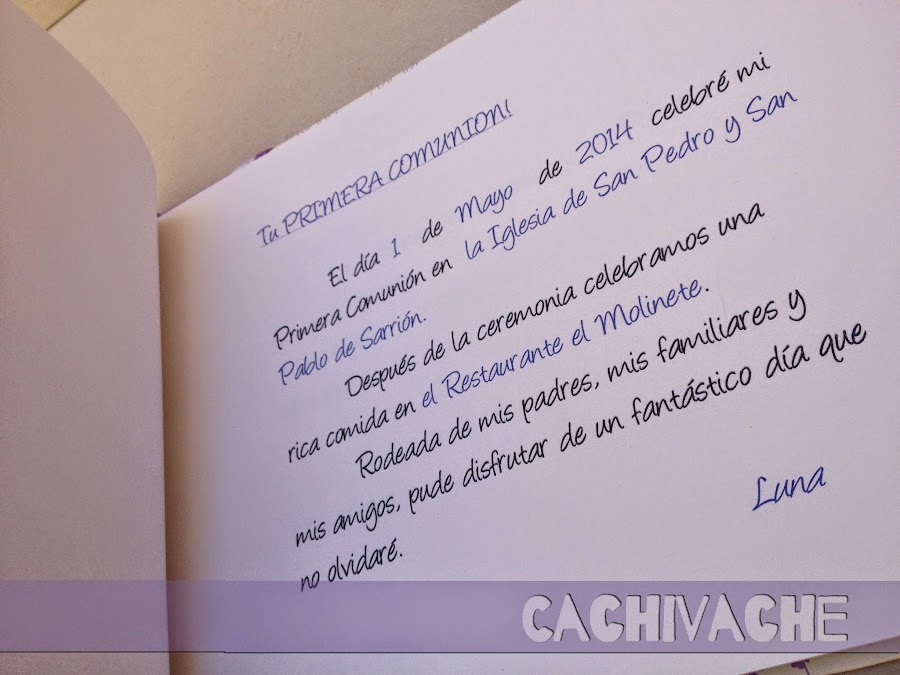 Tu PRIMERA COMUNION!
El día 1 de Mayo de 2014 celebré mi
Primera Comunión en la Iglesia de San Pedro y San
Pablo de Sarrión.
Después de la ceremonia celebramos una
rica comida en el Restaurante el Molinete.
Rodeada de mis padres, mis familiares y
mis amigos, pude disfrutar de un fantástico día que
no olvidaré.
Luna
CACHIVACHE